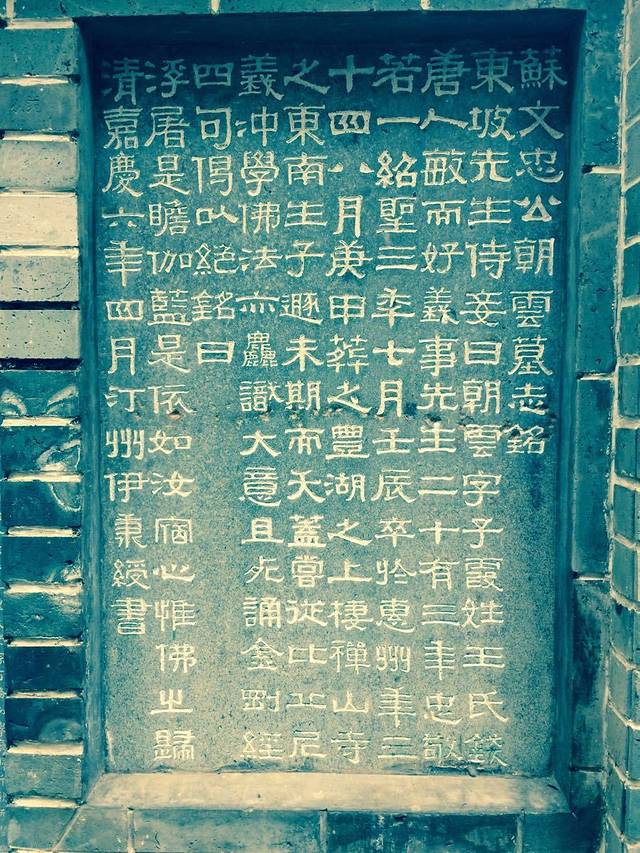 蘇文忠公朝雲墓志銘
東坡先生侍妾曰朝雲字子霞姓王氏錢
唐人敏而好義事先生二十有三年忠敬
若一紹聖三秊七月壬辰卒於惠州年三
十四八月庚申葬之豐湖之上棲禪山寺
之東南生子遯未期而夭蓋嘗從比丘尼
義沖學佛法亦麤識大意且死誦金剛經
四句偈以絕銘曰
浮屠是瞻伽藍是依如汝宿心惟佛之歸
清嘉慶六年四月汀州伊秉綬書